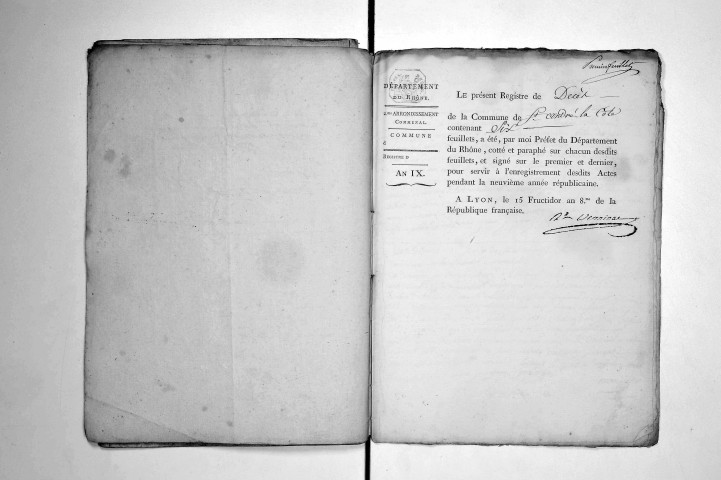 Premier feuillet
DÉPARTEMENT
DU RHÔNE.
ARRONDISSEMENT
COMMUNAL.
COMMUNE
d
REGISTRE D
AN IX.
LE présent Registre de Décès
de la Commune de St André la Cote
contenant Six
feuillets, a été, par moi Préfet du Département
du Rhône, cotté et paraphé sur chacun desdits
feuillets, et signé sur le premier et dernier,
pour servir à l'enregistrement desdits Actes
pendant la neuvième année républicaine.
A LYON, le 15 Fructidor an 8.me de la
République française.